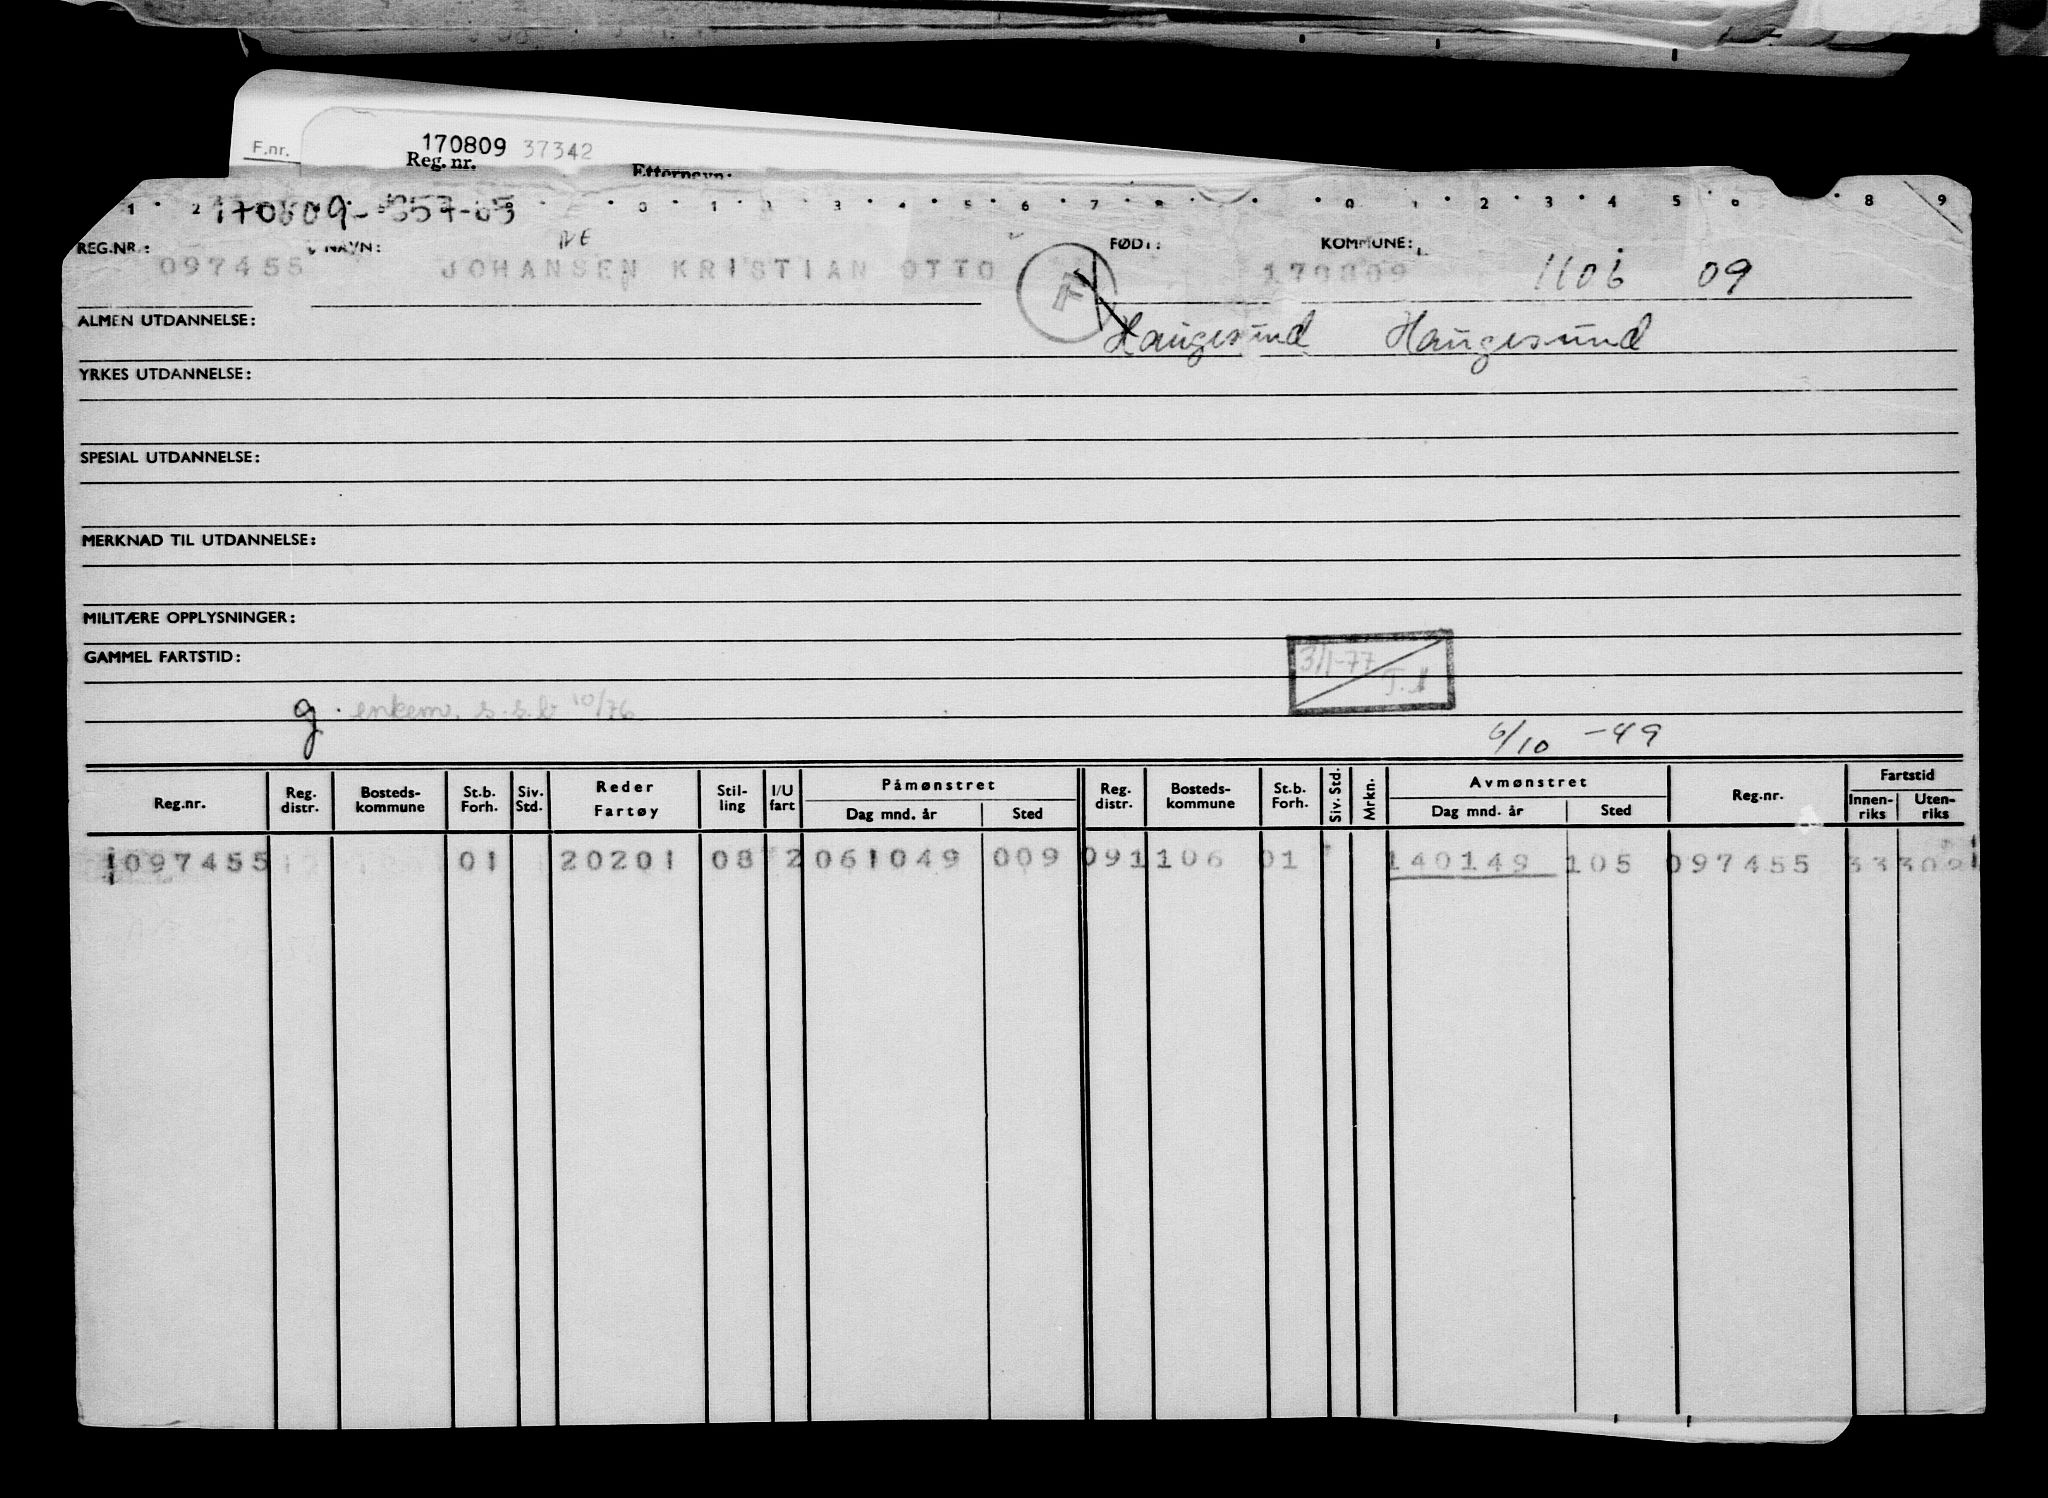 F.nr. 170809 37342
Reg. nr. Etternavn:
REG.NR.: NAVN: FØDT: KOMMUNE:
097455 JOHANSEN KRISTIAN OTTO 170809 1106 09
ALMEN UTDANNELSE: Haugesund Haugesund
YRKES UTDANNELSE:
SPESIAL UTDANNELSE:
MERKNAD TIL UTDANNELSE:
MILITÆRE OPPLYSNINGER:
GAMMEL FARTSTID:
3/1-77
g. enkem. s.s.b 10/76
6/10 -49
Reg.nr. Reg. distr. Bosteds- kommune St.b. Forh. Siv. Std. Reder Fartøy Stil- ling I/U fart Påmønstret Dag mnd. år Sted Reg. distr. Bosteds- kommune St.b. Forh. Siv. Std. Mrkn. Avmønstret Dag mnd. år Sted Reg.nr. Fartstid Innen- riks Uten- riks
1097455 01 20201 08 2 061049 009 09 1106 01 140149 105 097455